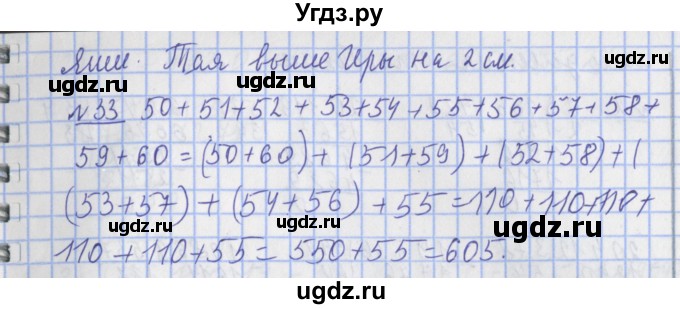 Угдз.ру
Яши. Тая выше Иры на 2 см.
ugdz.ru ugdz.ru ugdz.ru
№33 50+51+52+53+54+55+56+57+58+
59+60=(50+60)+(51+59)+(52+58)+(
ugdz.ru ugdz.ru
(53+57)+(54+56)+55=110+110+110+
ugdz.ru ugdz.ru ugdz.ru
110+110+55=550+55=605.
ugdz.ru ugdz.ru